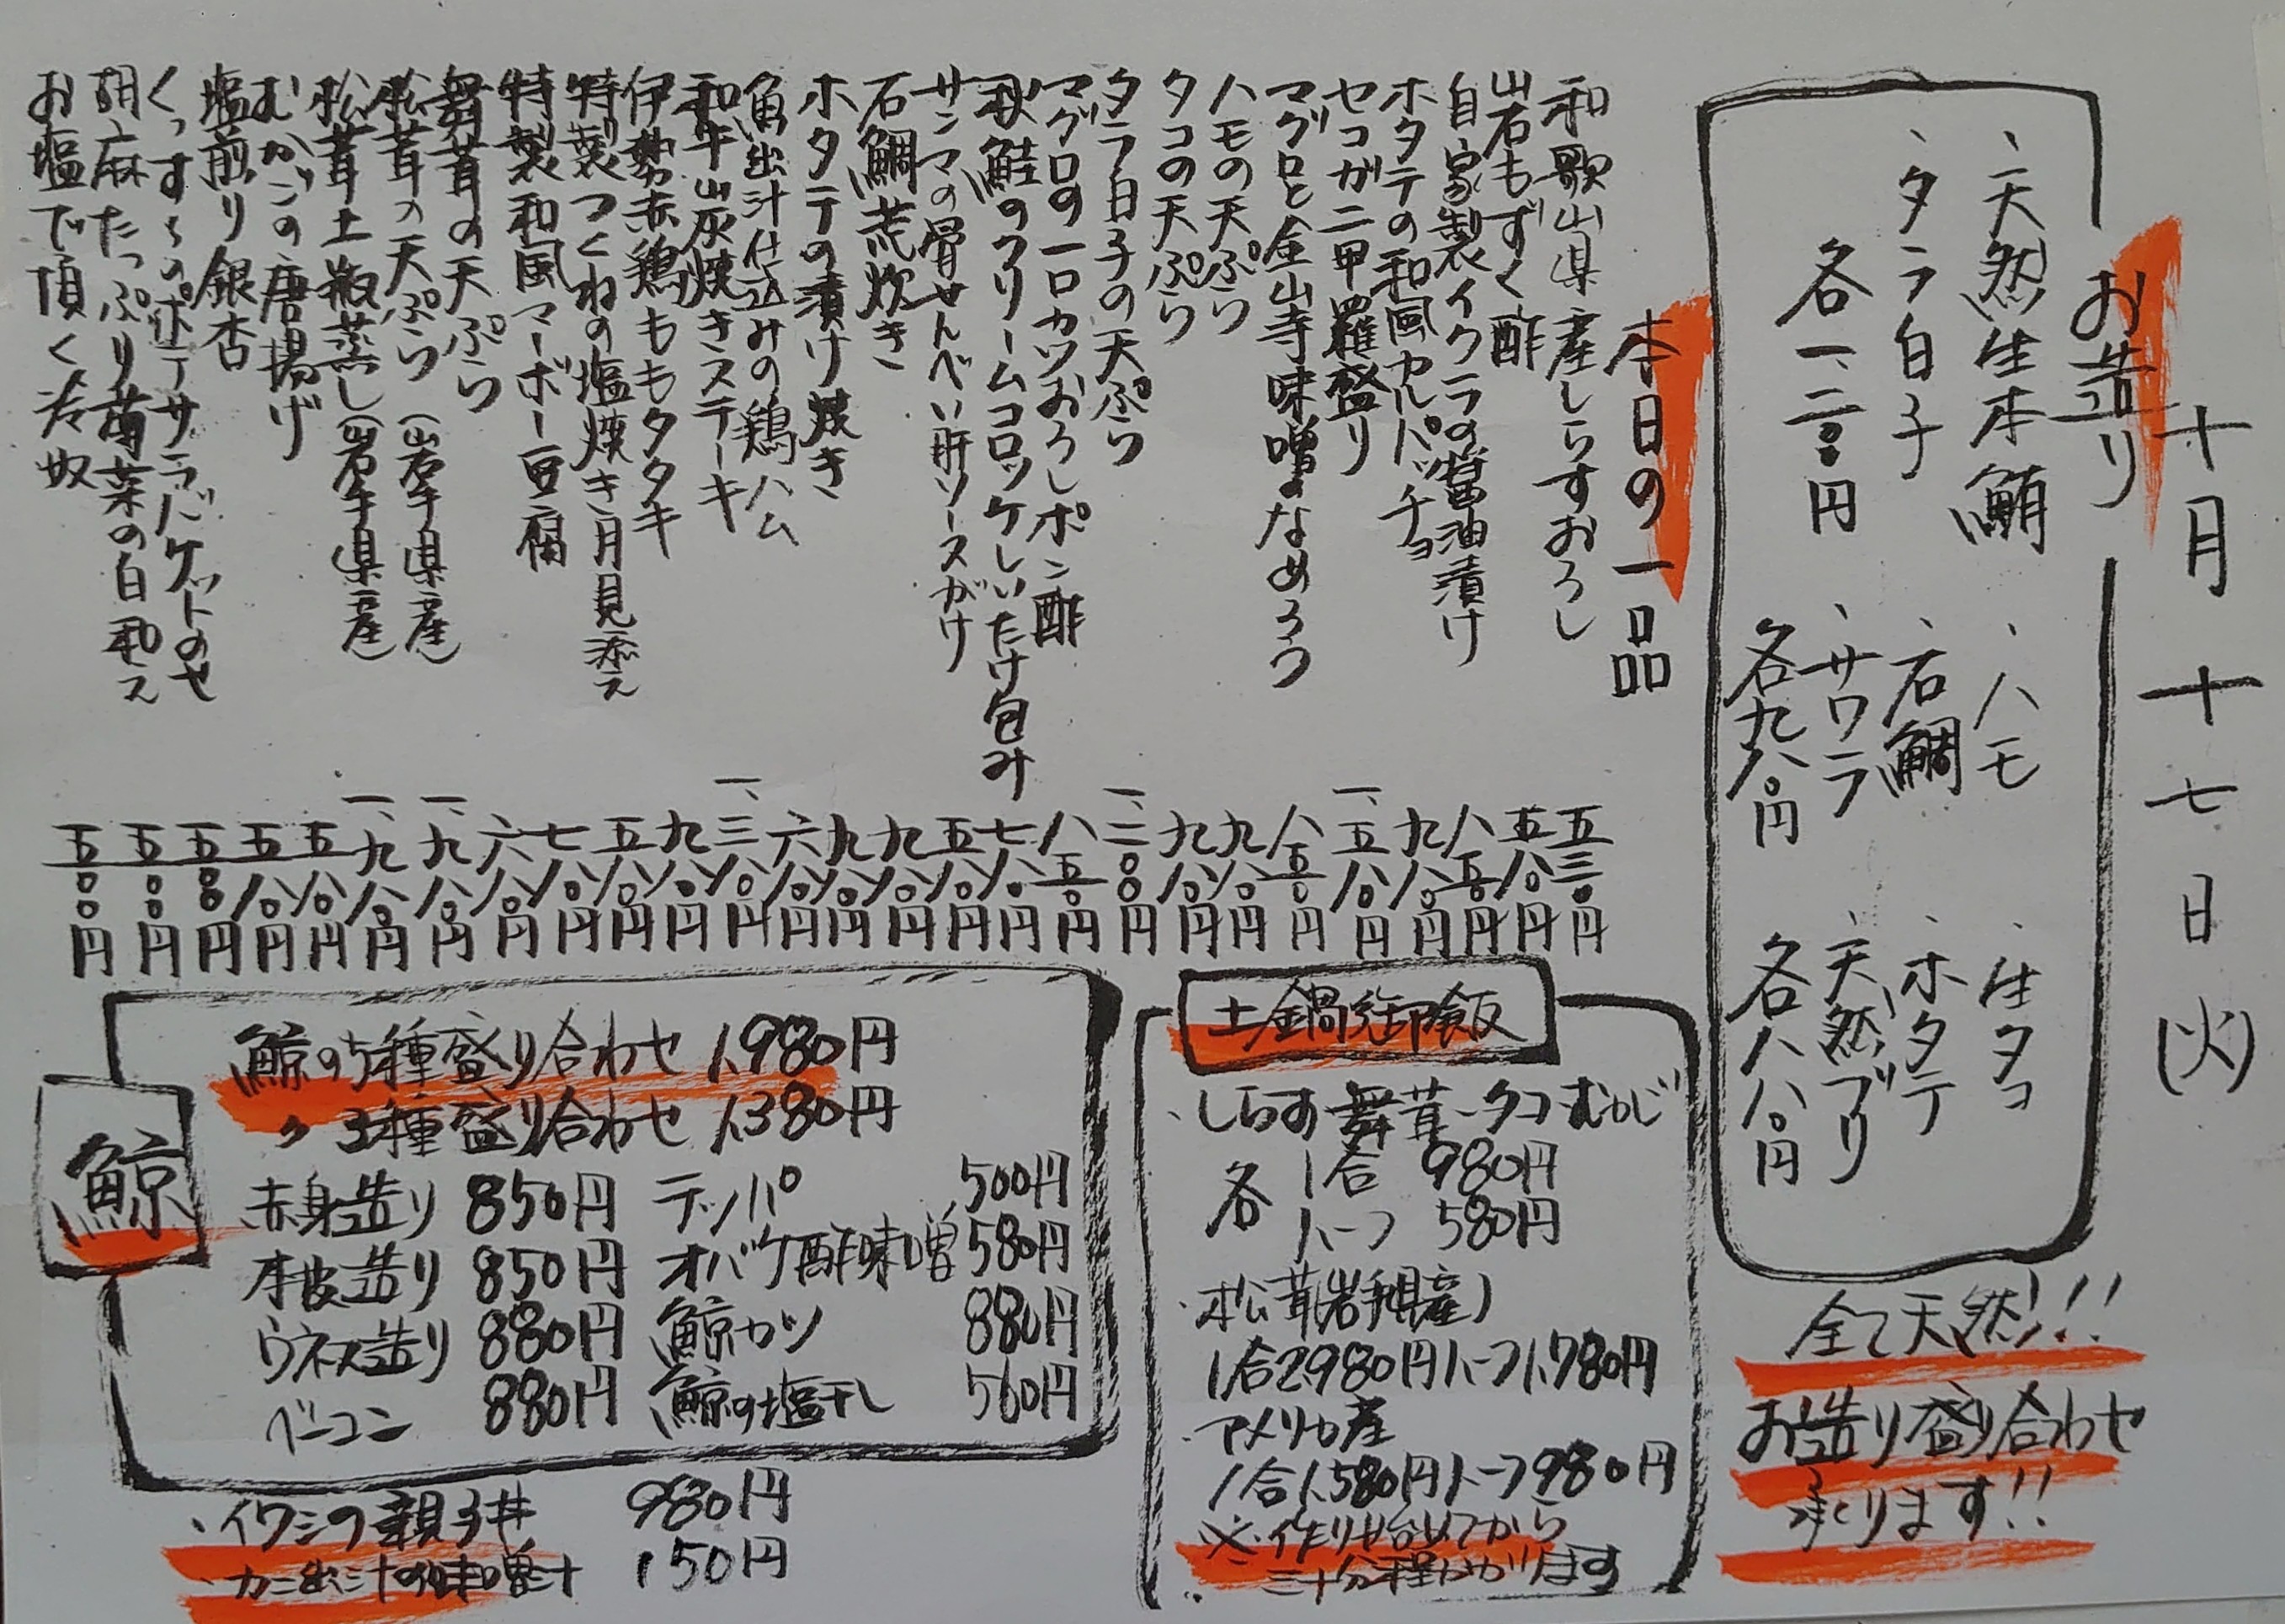 十月十七日(火)
お造り
、天然生本鮪
、タラ白子
各一、二〇〇円
、ハモ
、石鯛
、サワラ
各九八〇円
、生タコ
、ホタテ
、天然ブリ
各八八〇円
全て天然!!!
お造り盛り合わせ
承ります!!
本日の一品
和歌山県産しらすおろし 五三〇円
岩もずく酢 五八〇円
自家製イクラの醤油漬け 八五〇円
ホタテの和風カルパッチョ 九八〇円
セコガニ甲羅盛り 一、五八〇円
マグロと金山寺味噌のなめろう 八五〇円
ハモの天ぷら 九八〇円
タコの天ぷら 九八〇円
タラ白子の天ぷら 一、二〇〇円
マグロの一口カツおろしポン酢 八五〇円
秋鮭のクリームコロッケしいたけ包み 七八〇円
サンマの骨せんべい肝ソースがけ 五八〇円
石鯛荒炊き 九八〇円
ホタテの漬け焼き 九八〇円
魚出汁仕込みの鶏ハム 六八〇円
和牛山灰焼きステーキ 一、三八〇円
伊勢赤鶏ももタタキ 九八〇円
特製つくねの塩焼き月見添え 五八〇円
特製和風マーボー豆腐 七八〇円
舞茸の天ぷら 六八〇円
松茸の天ぷら(岩手県産) 一、九八〇円
松茸土瓶蒸し(岩手県産) 一、九八〇円
むかごの唐揚げ 五八〇円
塩煎り銀杏 五八〇円
くつすらのポテサラバケットのせ 五〇〇円
胡麻たっぷり菊菜の白和え 五〇〇円
お塩で頂く冷奴 五〇〇円
土鍋御飯
、しらす、舞茸、タコ、むかご
各 1合 980円
ハーフ 580円
、松茸(岩手県産)
1合2,980円ハーフ1,780円
、アメリカ産
1合1,580円ハーフ980円
※作り始めてから
三十分程かかります
鯨
鯨の5種盛り合わせ 1,980円
〃 3種盛り合わせ 1,380円
赤身造り 850円 テッパ 500円
本皮造り 850円 オバケ酢味噌 580円
ウネス造り 880円 鯨カツ 880円
ベーコン 880円 鯨の塩干し 560円
、イワシの親子丼 980円
、カニ出汁の味噌汁 150円